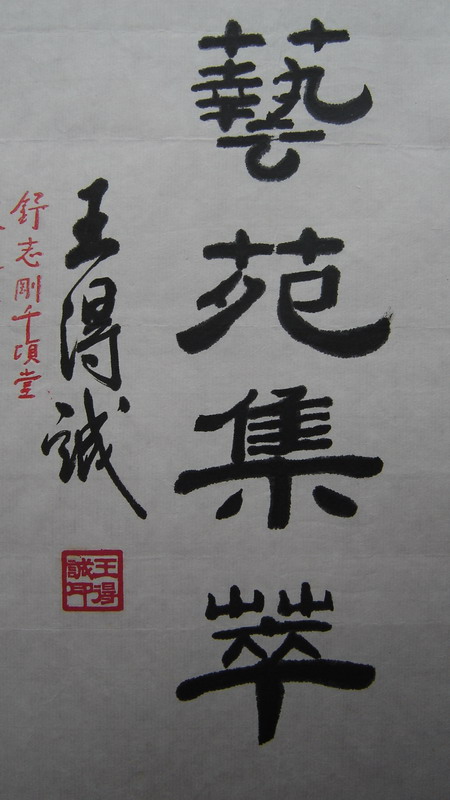 藝苑集萃
王得誠
王得誠印
舒志剛千頃堂